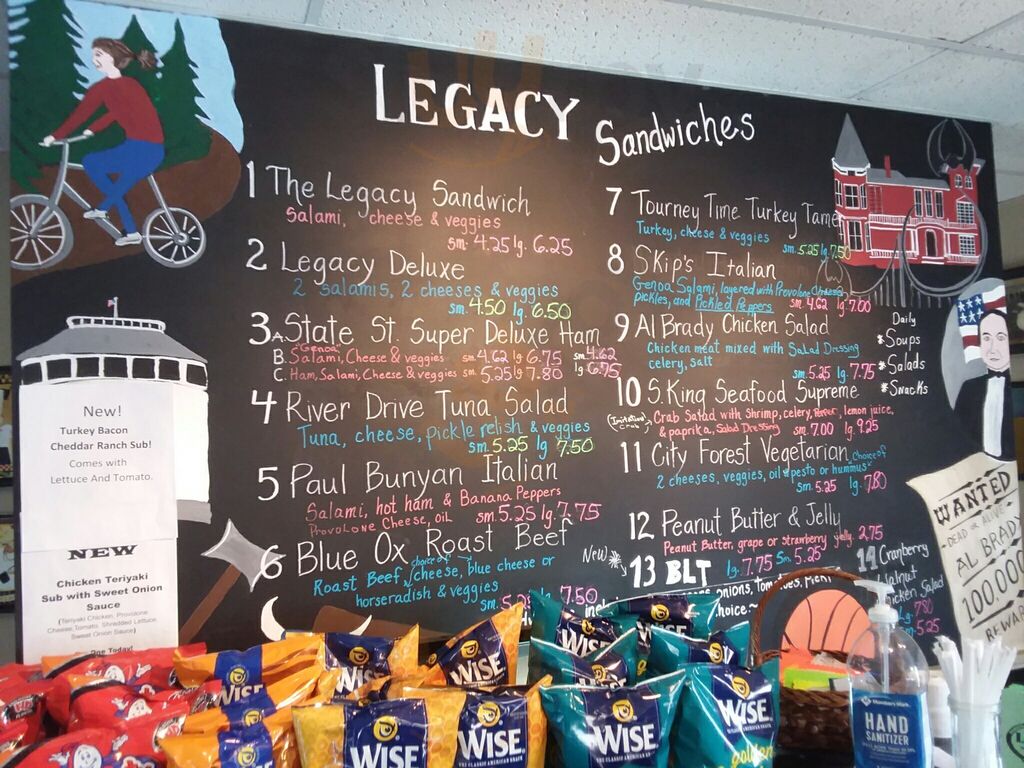 LEGACY Sandwiches
1 The Legacy Sandwich
Salami, cheese & veggies
sm. 4.25 lg. 6.25
2 Legacy Deluxe
2 salamis, 2 cheeses & veggies
sm. 4.50 lg. 6.50
3 A. State St. Super Deluxe Ham
sm. 4.62 lg. 6.75
B. Genoa Salami, Cheese & veggies sm. 4.62 lg 6.75
C. Ham, Salami, Cheese & veggies sm. 5.25 lg 7.80
4 River Drive Tuna Salad
Tuna, cheese, pickle relish & veggies
sm. 5.25 lg 7.50
5 Paul Bunyan Italian
Salami, hot ham & Banana Peppers
Provolone Cheese, oil sm. 5.25 lg. 7.75
6 Blue Ox Roast Beef
Roast Beef, choice of cheese, blue cheese or
horseradish & veggies
sm. 5.25 7.50
7 Tourney Time Turkey Tamer
Turkey, cheese & veggies
sm. 5.25 lg. 7.50
8 Skip's Italian
Genoa Salami, layered with Provolone Cheese,
pickles, and Pickled Peppers sm. 4.62 lg. 7.00
9 Al Brady Chicken Salad
Chicken meat mixed with Salad Dressing
celery, salt
sm. 5.25 lg. 7.75
10 S. King Seafood Supreme
(Imitation Crab) Crab Salad with Shrimp, celery, Pepper, lemon juice,
& paprika, Salad Dressing sm. 7.00 lg. 9.25
11 City Forest Vegetarian
2 cheeses, veggies, oil & pesto or hummus Choice of
sm. 5.25 lg. 7.80
12 Peanut Butter & Jelly
Peanut Butter, grape or strawberry jelly. 2.75
New 13 BLT lg. 7.75 Sm. 5.25
onions, tomatoes,
choice
14 Cranberry
Walnut
Chicken Salad
7.80
5.25
Daily
*Soups
*Salads
*Snacks
WANTED
DEAD OR ALIVE
AL BRADY
100,000
REWARD
New!
Turkey Bacon
Cheddar Ranch Sub!
Comes with
Lettuce And Tomato.
NEW
Chicken Teriyaki
Sub with Sweet Onion
Sauce
(Teriyaki Chicken, Provolone
Cheese, Tomato, Shredded Lettuce,
Sweet Onion Sauce)
One Today!
WISE
WISE
WISE
WISE
WISE
WISE
WISE
WISE
WISE
WISE
THE CLASSIC AMERICAN SNACK
golden
Member's Mark
HAND
SANITIZER